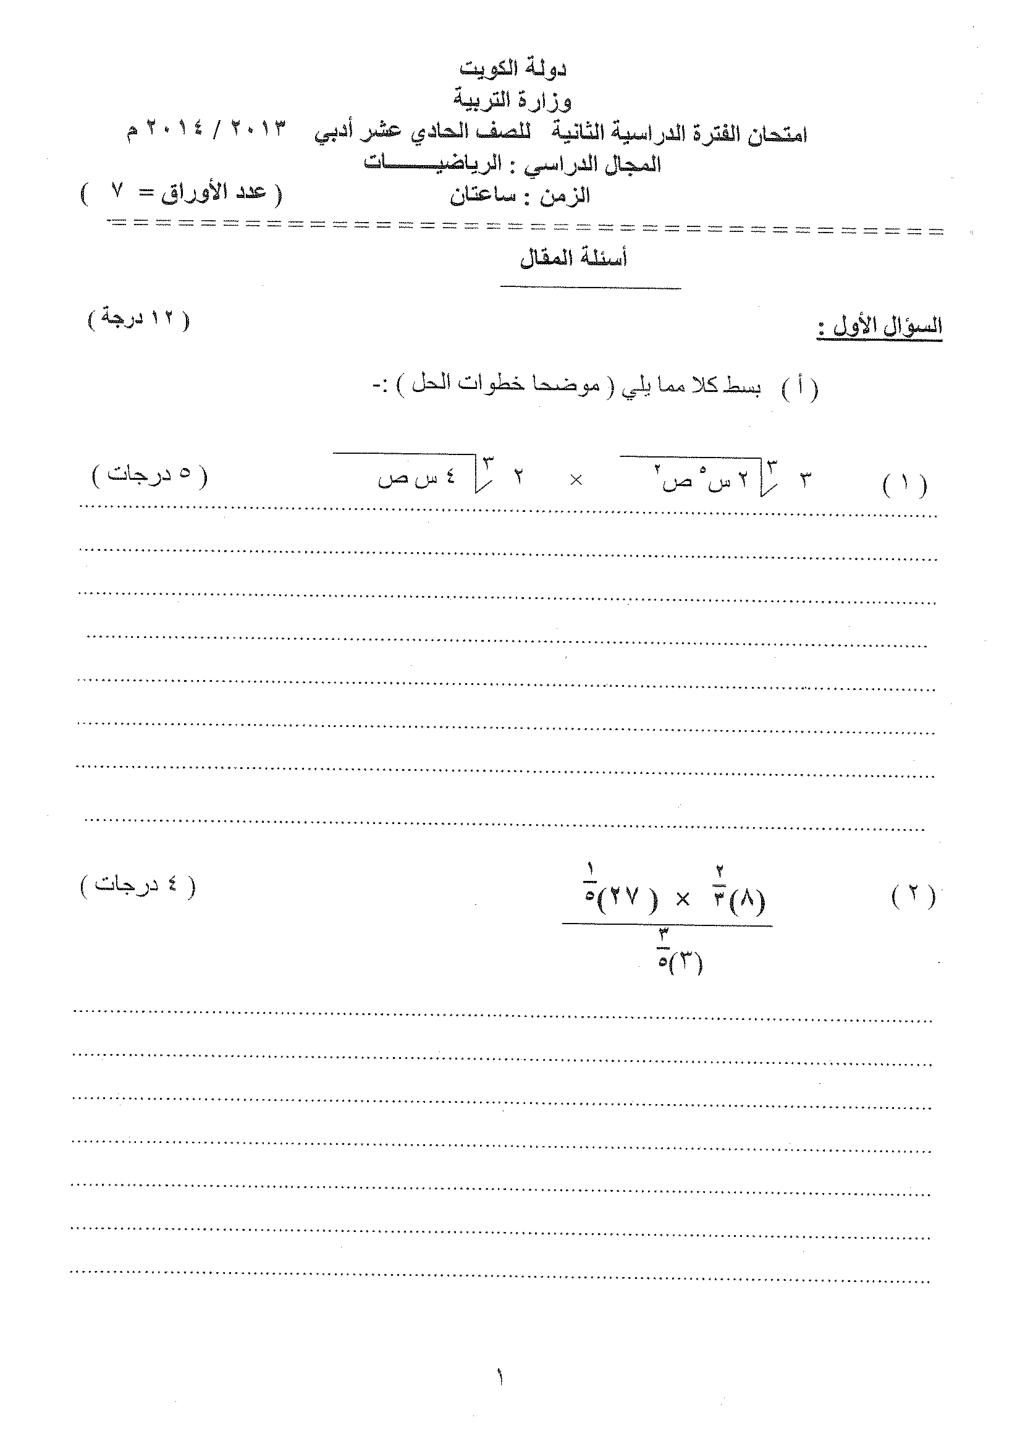 دولة الكويت
وزارة التربية
امتحان الفترة الدراسية الثانية للصف الحادي عشر أدبي ٢٠١٣ / ٢٠١٤ م
المجال الدراسي : الرياضيـــــــات
الزمن : ساعتان ( عدد الأوراق = ٧ )
أسئلة المقال
السؤال الأول : ( ١٢ درجة )
( أ ) بسط كلا مما يلي ( موضحا خطوات الحل ) :-
( ١ ) ٣ ∛(٢ س^٥ ص^٢) × ٢ ∛(٤ س ص) ( ٥ درجات )
( ٢ ) (٨)^(٢/٣) × (٢٧)^(١/٥) ( ٤ درجات )
(٣)^(٣/٥)
١